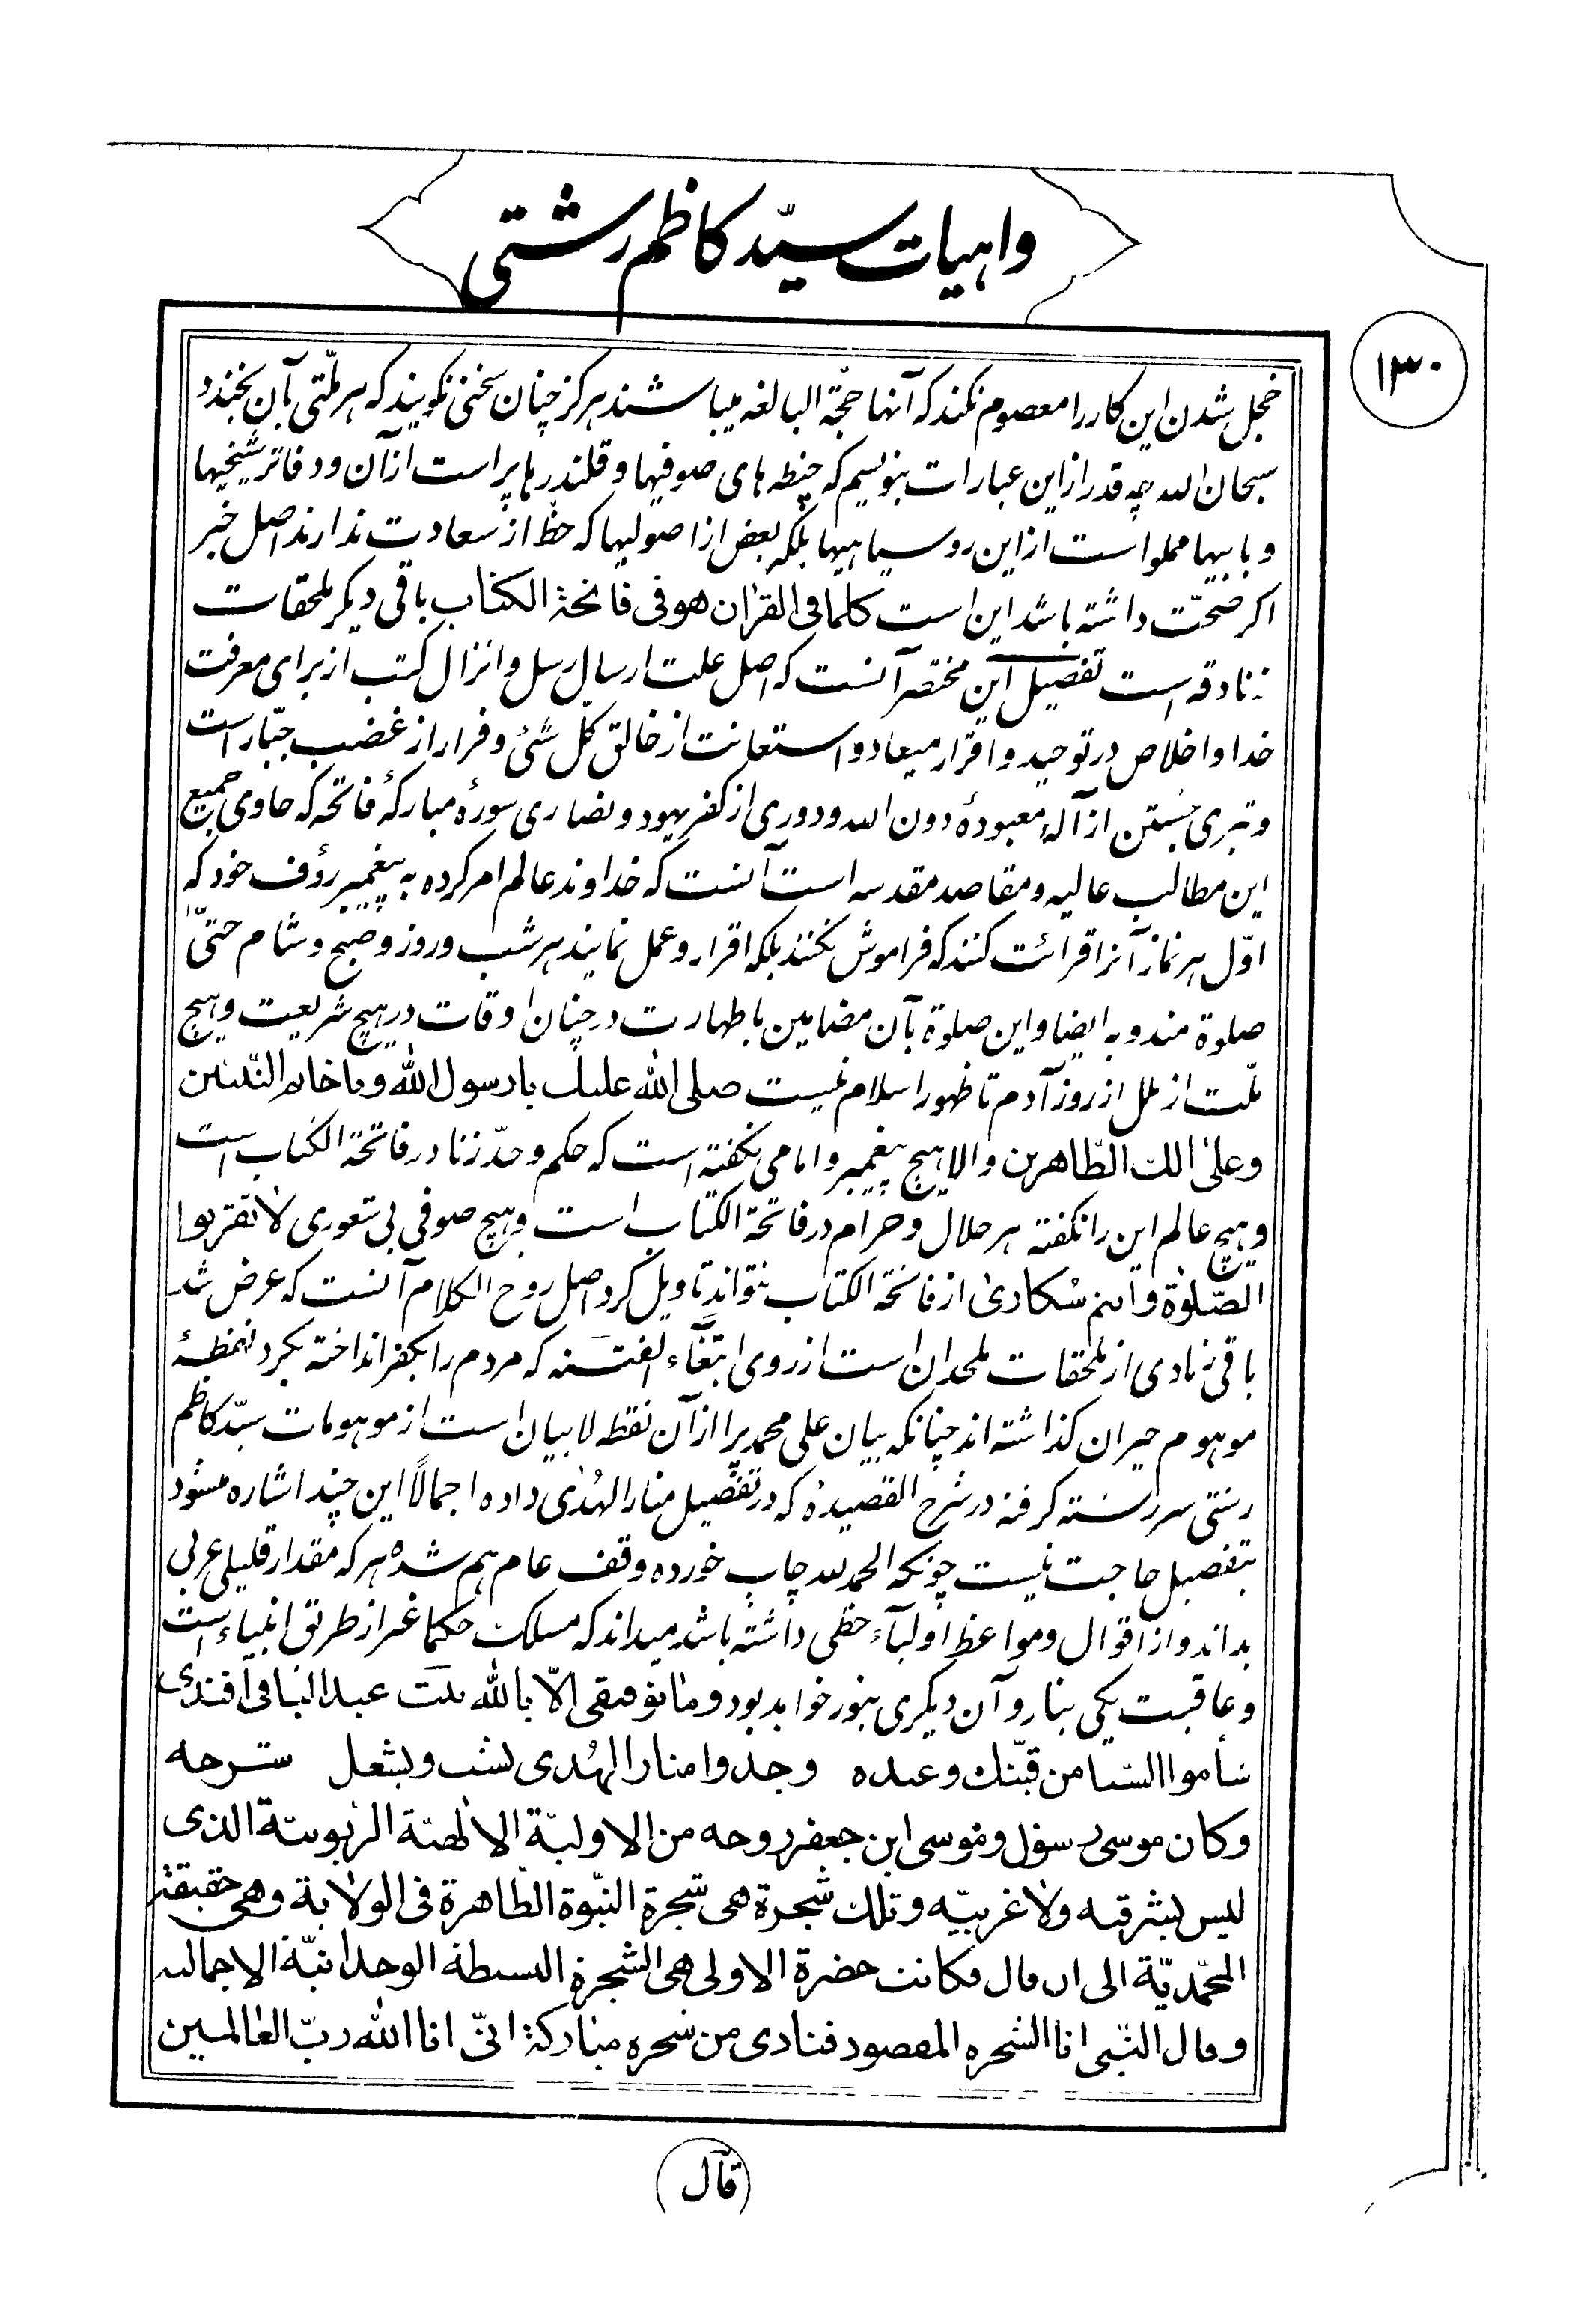 واهیات سیّد کاظم رشتی
۱۳۰
خجل شدن این کار را معصوم نکند که آنها حجّة البالغه میباشند هرکز چنان سخنی نکویند که هر ملّتی بآن بخندد
سبحان الله چه قدر از این عبارات بنویسیم که حنطه های صوفیها و قلندرها پر است از آن و دفاتر شیخیها
و بابیها مملو است از این روسیاهیها بلکه بعض از اصولیها که حظّ از سعادت ندارند اصل خبر
اکر صحّت داشته باشد این است کلما فی القرٰان هو فی فاتحة الکتاب باقی دیکر ملحقات
زنادقه است تفصیل این مختصر آنست که اصل علت ارسال رسل و انزال کتب از برای معرفت
خدا و اخلاص در توحید و اقرار میعاد و استعانت از خالق کل شئ و فرار از غضب جبّار است
و تبری جستن از آلهٔ معبودهٔ دون الله و دوری از کفر یهود و نصاری سورهٔ مبارکهٔ فاتحه که حاوی جمیع
این مطالب عالیه و مقاصد مقدسه است آنست که خداوند عالم امر کرده به پیغمبر رؤف خود که
اوّل هر نماز آنرا قرائت کنند که فراموش نکنند بلکه اقرار و عمل نمایند هر شب و روز و صبح و شام حتیّ
صلوة مندوبه ایضا و این صلوة بآن مضامین با طهارت در چنان اوقات در هیچ شریعت و هیچ
ملّت از ملل از روز آدم تا ظهور اسلام نیست صلی الله علیك یا رسول الله و یا خاتم النّبیّین
و علیٰ الك الطّاهرین والا هیچ پیغمبر و امامی نکفته است که حکم و حدّ زنا در فاتحة الکتاب است
و هیچ عالم این را نکفته هر حلال و حرام در فاتحة الکتاب است و هیچ صوفی بی شعوری لا تقربوا
الصّلوٰة و انتم سُکاریٰ از فاتحة الکتاب نتواند تاویل کرد اصل روح الکلام آنست که عرض شد
باقی زیادی از ملحقات ملحدان است از روی ابتغآء الفتنه که مردم را بکفر انداخته بکرد نقطهٔ
موهوم حیران کذاشته اند چنانکه بیان علی محمد پر از آن نقطه لا بیان است از موهومات سیّد کاظم
رشتی سررشته کرفته در شرح القصیدهٔ که در تفصیل منار الهُدٰی داده اجمالاً این چند اشاره میشود
بتفصیل حاجت نیست چونکه الحمد لله چاپ خورده وقف عام هم شده هر که مقدار قلیلی عربی
بداند و از اقوال و مواعظ اولیآء حظی داشته باشد میداند که مسلک حکما غیر از طریق انبیاء است
و عاقبت یکی بنار و آن دیکری بنور خواهد بود و مٰا توفیقی الّا بالله بیت عبد الباقی افندی
شأموا السّنا من قبّتك و عنده   وجدوا منار الهُدی یشب و یشعل   شرحه
و کان موسی رسول و موسی ابن جعفر روحه من الاولیّة الالٰهیّة الرّبوبیّة الذی
لیس بشرقیه ولا غربییّه و تلك شجرة هی شجرة النبّوة الظّاهرة فی الولایة و هی حقیقته
المحّمدیّة الی ان قال فکانت حضرة الاولی هی الشّجرة البسیطة الوحدانیّة الاجمالیه
و قال النّبی انا الشجره المقصود فنادی من شجره مبارکة انیّ انا الله ربّ العٰالمین
قآل